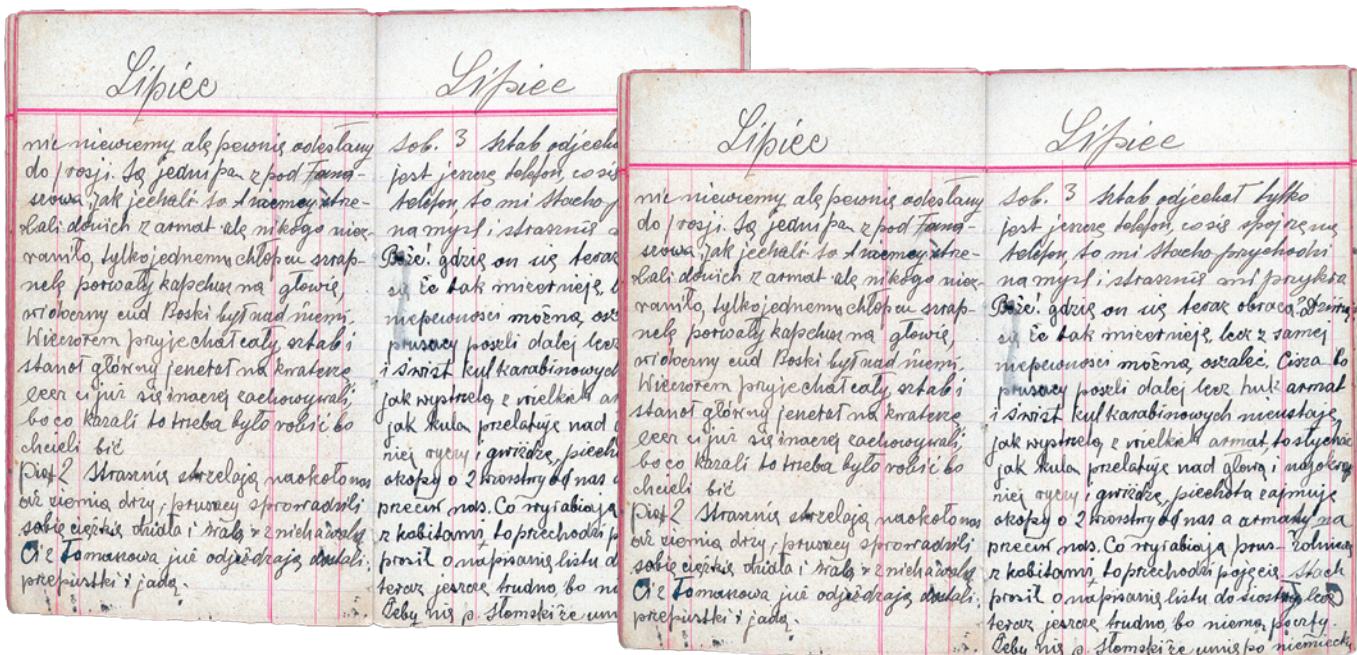 Lipiec
nic niewiemy ale pewnie odesłany
do rosji. Są jedni pa z pod Tana-
scowa, jak jechali to Niemcy strze-
lali do nich z armat ale nikogo niez-
raniło, tylko jednemu chłopcu szrap-
nele porwały kapelusz na głowie,
widoczny cud Boski był nad niemi.
Wieczorem przyjechał cały sztab i
stanoł główny jenerał na kwaterze
lecz ci już się inaczej zachowywali,
bo co kazali to trzeba było robić bo
chcieli bić
Piąt 2 Strasznie strzelają naokoło nas
aż ziemia drzy, prusacy sprowadzili
sobie ciężkie działa i walą z nich
Ci z Tomanowa już odjeżdzają dostali
przepustki i jadą.
Lipiec
sob. 3 sztab odjecha
jest jeszcze telefon, co się
telefon, to mi Stacho
na myśl i strasznie
Boże! gdzie on się teraz
się że tak mizernieje, l
niepewności można osz
prusacy poszli dalej lecz
i świst kul karabinowych
jak wystrzelą z wielkich ar
jak kula przelatuje nad
niej ryczy i gwiżdże, piech
okopy o 2 wiorstwy od nas
przeciw nas. Co wyrabiają
z kobitami, to przechodzi p
prosił o napisanie listu d
teraz jeszcze trudno, bo ni
Żeby nie p. Słomski że umi
Lipiec
nic niewiemy ale pewnie odesłany
do rosji. Są jedni pa z pod Tana-
scowa, jak jechali to Niemcy strze-
lali do nich z armat ale nikogo niez-
raniło, tylko jednemu chłopcu szrap-
nele porwały kapelusz na głowie,
widoczny cud Boski był nad niemi.
Wieczorem przyjechał cały sztab i
stanoł główny jenerał na kwaterze
lecz ci już się inaczej zachowywali,
bo co kazali to trzeba było robić bo
chcieli bić
Piąt 2 Strasznie strzelają naokoło nas
aż ziemia drzy, prusacy sprowadzili
sobie ciężkie działa i walą z nich
Ci z Tomanowa już odjeżdzają dostali
przepustki i jadą.
Lipiec
sob. 3 sztab odjechał tylko
jest jeszcze telefon, co się spojrze na
telefon, to mi Stacho przychodzi
na myśl i strasznie mi przykro
Boże! gdzie on się teraz obraca? Dziwię
się że tak mizernieje, lecz z samej
niepewności można oszaleć. Cisza bo
prusacy poszli dalej lecz huk armat
i świst kul karabinowych nieustaje
jak wystrzelą z wielkich armat, to słychać
jak kula przelatuje nad głową i najokrop
niej ryczy i gwiżdże, piechota zajmuje
okopy o 2 wiorstwy od nas a armaty na
przeciw nas. Co wyrabiają prus- żołnierze
z kobitami, to przechodzi pojęcie, Stach
prosił o napisanie listu do siostry lecz
teraz jeszcze trudno, bo niema poczty.
Żeby nie p. Słomski że umie po niemiecku